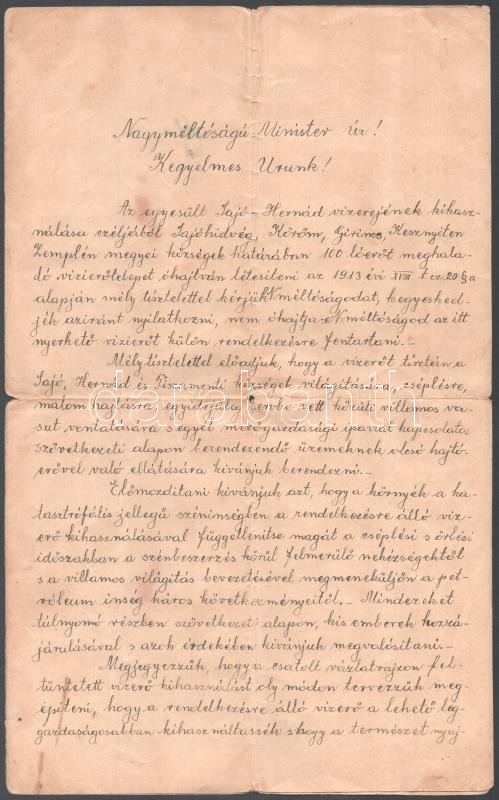 Nagyméltóságú Minister úr!
Kegyelmes Urunk!
Az egyesült Sajó-Hernád vizerejének kihasz-
nálása czéljából Sajóhidvég, Köröm, Girincs, Kesznyéten
Zemplén megyei községek határában 100 lóerőt meghala-
dó vizierőtelepet óhajtván létesíteni az 1913 évi XVIII t. cz. 20 § a
alapján mély tisztelettel kérjük Nméltóságodat, kegyesked-
jék aziránt nyilatkozni, nem óhajtja-e Nméltóságod az itt
nyerhető vizierőt külön rendelkezésre fentartani.-
Mély tisztelettel előadjuk, hogy a vizerőt
Sajó, Hernád és Tiszamenti községek világítására, cséplésre,
malom hajtásra, egyidejüleg tervbe vett körüli villamos va-
sut vontatására s egyéb mezőgazdasági iparral kapcsolatos
szövetkezeti alapon berendezendő üzemeknek olcsó hajtó-
erővel való ellátására kivánjuk berendezni.-
Előmozditani kivánjuk azt, hogy a környék a ka-
tasztrófális jellegű széninségben a rendelkezésre álló viz-
erő kihasználásával függetlenitse magát a cséplési s őrlési
időszakban a szénbeszerzés körül felmerülő nehézségektől
s a villamos világitás bevezetésével megmeneküljön a pet-
róleum inség káros következményeitől.- Mindezeket
túlnyomó részben szövetkezet alapon, kis emberek hozzá-
járulásával s azok érdekében kivánjuk megvalósitani.-
Megjegyezzük, hogy a csatolt vázlatrajzon fel-
tüntetett vizerő kihasználást oly módon tervezzük meg-
épiteni, hogy a rendelkezésre álló vizerő a lehető leg-
gazdaságosabban kihasználtassék s hogy a természet nyuj-
darabanth